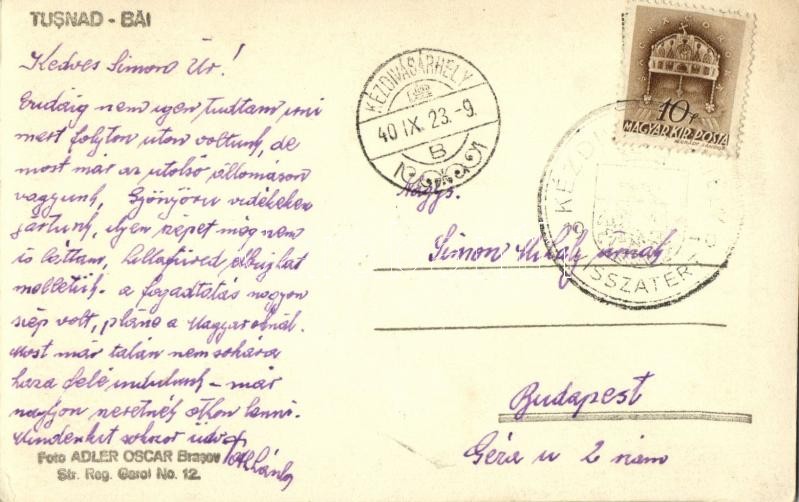 TUȘNAD - BĂI
Kedves Simon Úr!
Eddig nem igen tudtam irni
mert folyton uton voltunk, de
most már az utolsó állomáson
vagyunk, Gyönyörü vidékeken
jártunk, ilyen szépet még nem
is láttam, Lillafüred elbujhat
mellettük - a fogadtatás nagyon
szép volt, pláne a Magyaroknál.
Most már talán nem sokára
haza felé indulunk - már
nagyon szeretnék othon lenni.
Mindenkit sokszor üdv
Foto ADLER OSCAR Brașov
Str. Reg. Carol No. 12.
KÉZDIVÁSÁRHELY
40 IX. 23.-9
B
10f
MAGYAR KIR. POSTA
KÉZDI
VISSZATÉRT
Nagys.
Simon Mihály urnak
Budapest
Géza u 2 szám